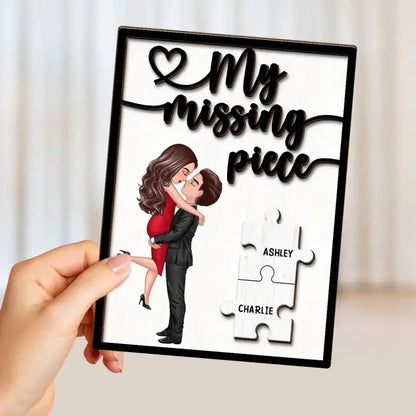 My
missing
piece
ASHLEY
CHARLIE